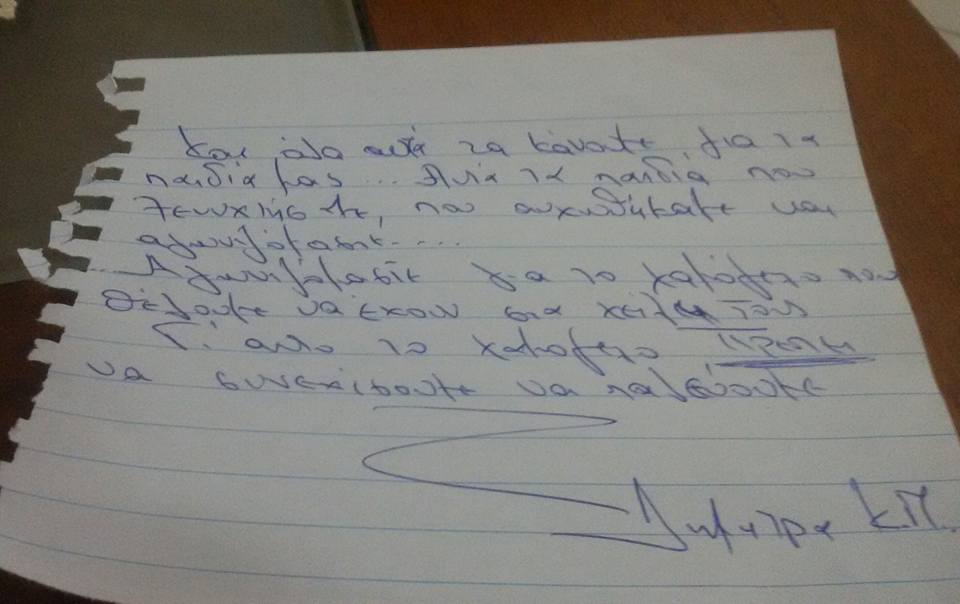 Και όλα αυτά τα κάνατε για τα
παιδιά μας ... Για τα παιδιά που
ξενυχτήσατε, που
αγωνιζόμαστε....
Αγωνιζόμαστε για το χαμόγελο που
θέλουμε να έχουν στα χείλη τους
Γι αυτό το χαμόγελο πρέπει
να συνεχίσουμε να παλεύουμε
Δήμητρα Κ.Π.